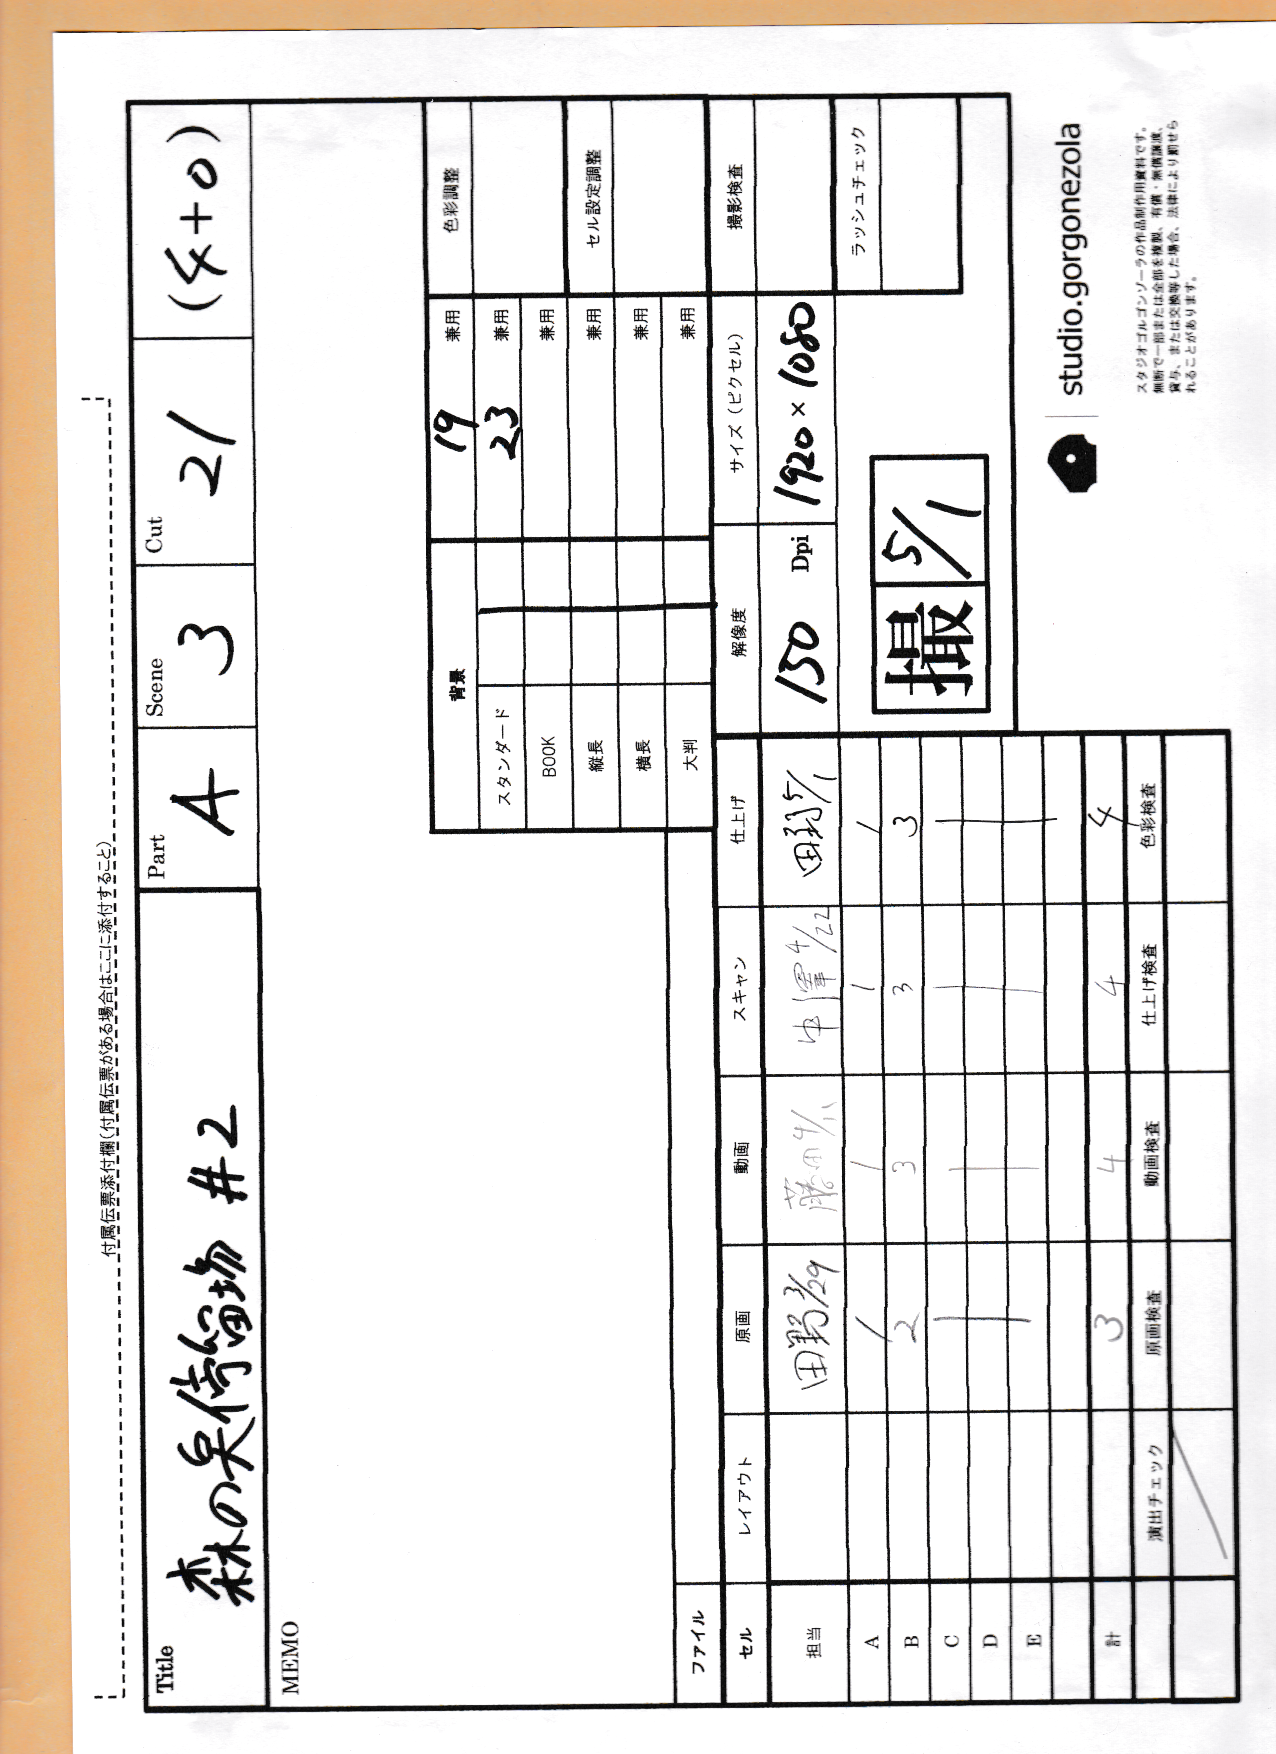 付属伝票添付欄(付属伝票がある場合はここに添付すること)
Title
森の
留場 #2
Part
A
Scene
3
Cut
21
(4+0)
MEMO
背景
19 兼用
色彩調整
スタンダード
23 兼用
BOOK
兼用
縦長
兼用
セル設定調整
横長
兼用
大判
兼用
解像度
サイズ(ピクセル)
撮影検査
150 Dpi
1920×1080
ラッシュチェック
撮 5/1
ファイル
セル レイアウト 原画 動画 スキャン 仕上げ
担当 田野 3/29 藤田 4/11 中澤 4/22 田野 5/1
A 1 1 1 1
B 2 3 3 3
C
D
E
計 3 4 4 4
演出チェック 原画検査 動画検査 仕上げ検査 色彩検査
studio.gorgonezola
スタジオゴルゴンゾーラの作品制作用資料です。
無断で一部または全部を複製、有償・無償譲渡、
貸与、または交換等した場合、法律により罰せら
れることがあります。